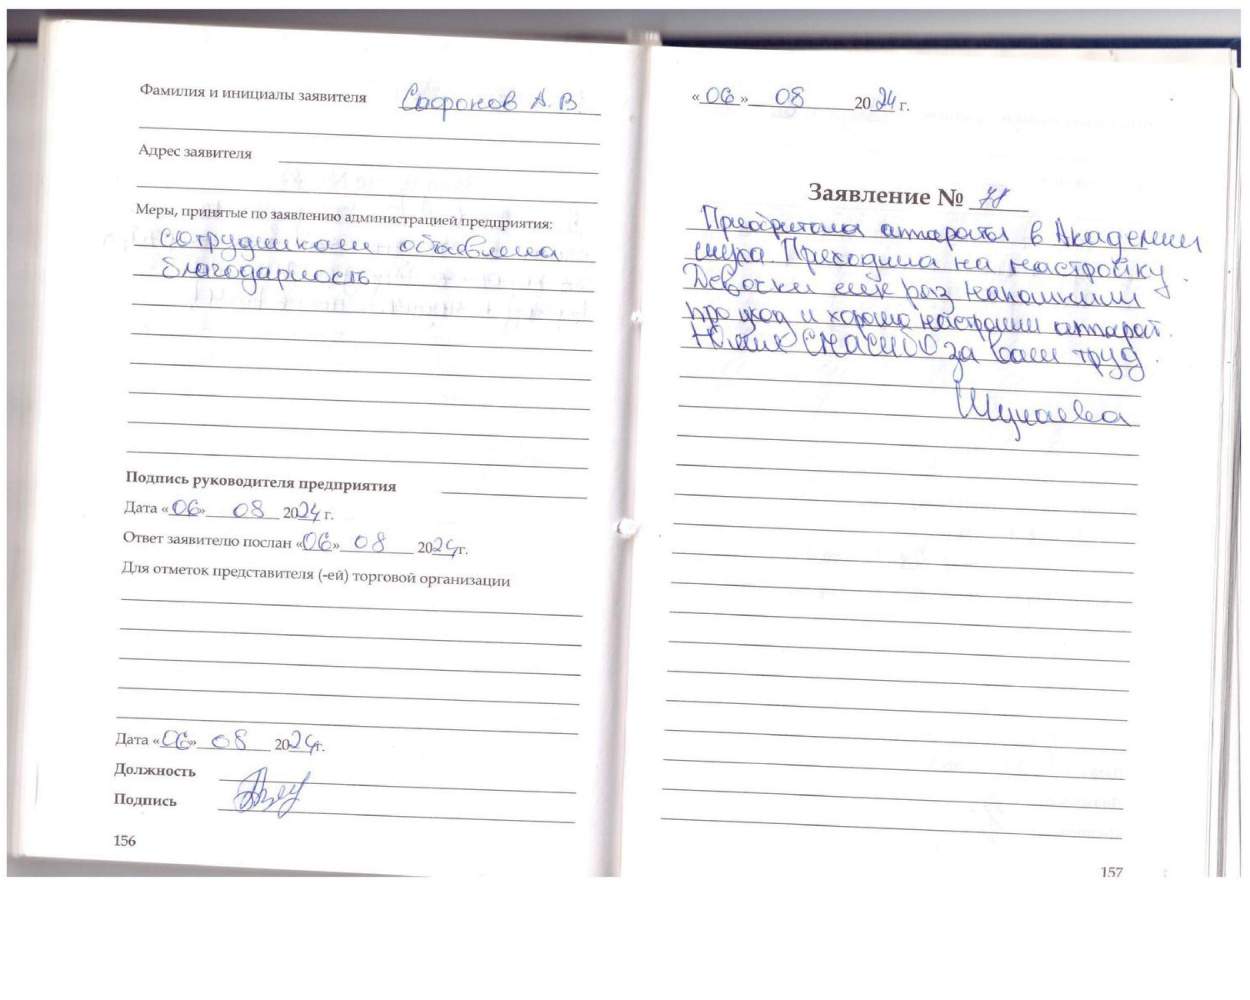 Фамилия и инициалы заявителя Сафронов А. В.
Адрес заявителя
Меры, принятые по заявлению администрацией предприятия:
сотрудникам объявлена
благодарность
Подпись руководителя предприятия
Дата «06» 08 2024 г.
Ответ заявителю послан «06» 08 2024 г.
Для отметок представителя (-ей) торговой организации
Дата «06» 08 2024 г.
Должность
Подпись
156
«06» 08 2024 г.
Заявление № 78
Приобритала аппараты в Академии
слуха. Приходила на настройку.
Девочки еще раз напомнили
про уход и хорошо настроили аппарат.
СПАСИБО за ваш труд.
157